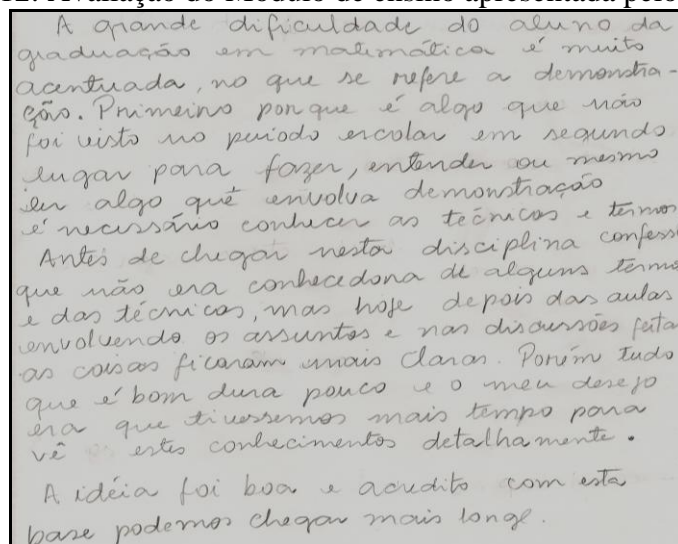 12. Avaliação do Módulo de ensino apresentada pelo
A grande dificuldade do aluno da
graduação em matimática é muito
acentuada, no que se refere a demonstra-
ção. Primeiro porque é algo que não
foi visto no período escolar em segundo
lugar para fazer, entender ou mesmo
ler algo que envolva demonstração
é necessário conhecer as técnicas e termos
Antes de chegar nesta disciplina confess
que não era conhecedora de alguns termo
e das técnicas, mas hoje depois das aulas
envolvendo os assuntos e nas discussões feita
as coisas ficaram mais claras. Porém tudo
que é bom dura pouco e o meu desejo
era que tivessemos mais tempo para
vê estes conhecimentos detalhamente.
A idéia foi boa e acredito com esta
base podemos chegar mais longe.